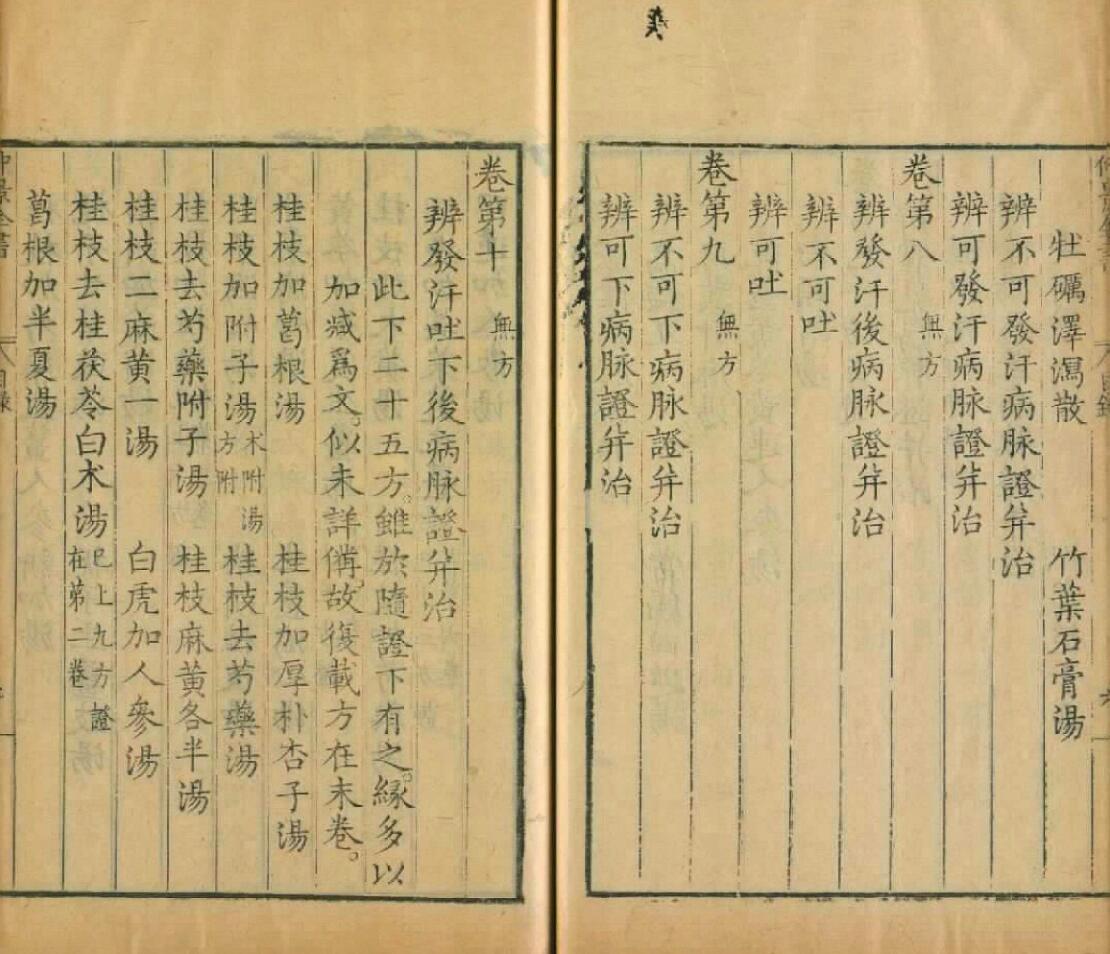 牡礪澤瀉散　竹葉石膏湯
辨不可發汗病脉證并治
辨可發汗病脉證并治
卷第八　無方
辨發汗後病脉證并治
辨不可吐
辨可吐
卷第九　無方
辨不可下病脉證并治
辨可下病脉證并治
卷第十　無方
辨發汗吐下後病脉證并治
此下二十五方。雖於隨證下有之。緣多以
加減爲文。似未詳備。故復載方在末卷。
桂枝加葛根湯　桂枝加厚朴杏子湯
桂枝加附子湯　术附湯方附　桂枝去芍藥湯
桂枝去芍藥附子湯　桂枝麻黄各半湯
桂枝二麻黄一湯　白虎加人參湯
桂枝去桂茯苓白术湯　已上九方證在第二卷
葛根加半夏湯